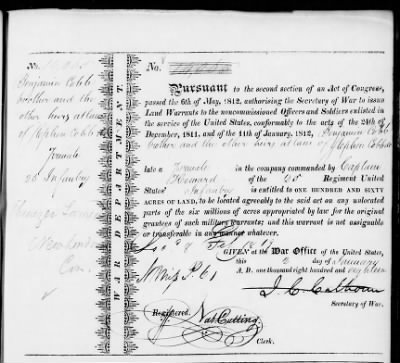 No.
Benjamin Cobb
brother and the
other heirs at law
of Stephen Cobb
Private
25 Infantry
New London
Con.
WAR DEPARTMENT.
No.
Pursuant to the second section of an Act of Congress,
passed the 6th of May, 1812, authorising the Secretary of War to issue
Land Warrants to the noncommissioned Officers and Soldiers enlisted in
the service of the United States, conformably to the acts of the 24th of
December, 1811, and of the 11th of January, 1812, Benjamin Cobb
brother and the other heirs at law of Stephen Cobb
late a Private in the company commanded by Captain
Howard of the 25 Regiment United
States' Infantry
is entitled to ONE HUNDRED AND SIXTY
ACRES OF LAND, to be located agreeably to the said act on any unlocated
parts of the six millions of acres appropriated by law for the original
grantees of such military warrants; and this warrant is not assignable
or transferable in any manner whatever.
GIVEN at the War Office of the United States,
this day of January
A. D. one thousand eight hundred and eighteen
J. C. Calhoun
Secretary of War.
Registered. Nat. Cutting
Clerk.